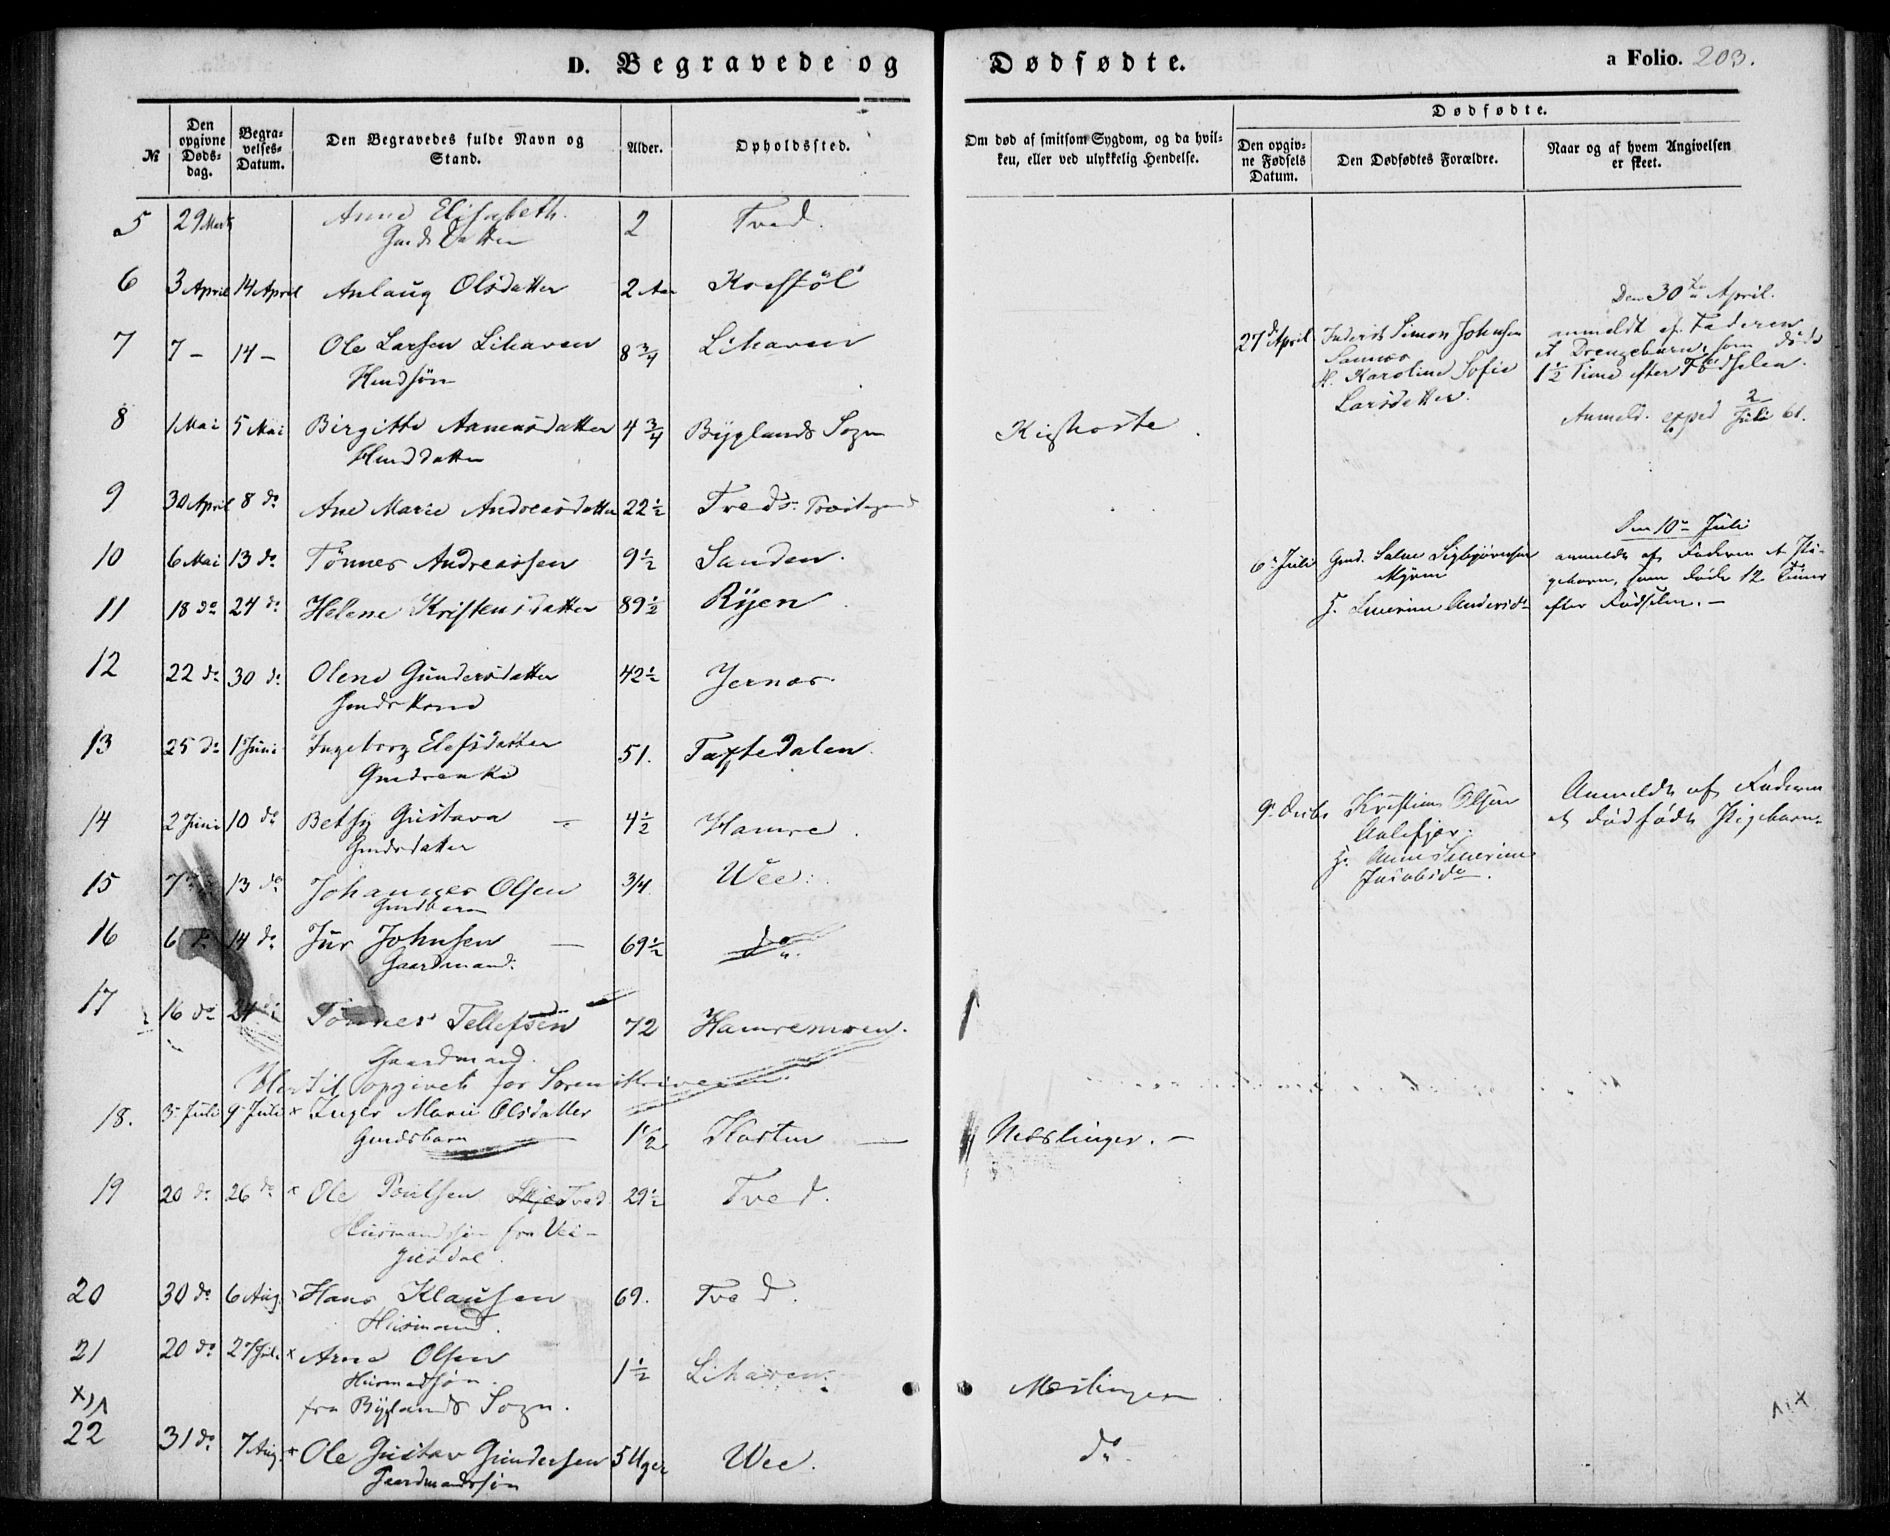 D. Begravede og Dødfødte. a Folio. 203.
№
Den opgivne Døds-dag.
Begra-velses-Datum.
Den Begravedes fulde Navn og Stand.
Alder.
Opholdssted.
Om død af smitsom Sygdom, og da hvil-
ken, eller ved ulykkelig Hendelse.
Dødfødte.
Den opgiv-ne Fødsels Datum.
Den Dødfødtes Forældre.
Naar og af hvem Angivelsen er skeet.
5 29 Marts Anne Elisabeth. 2 Tved.
Gmdsdatter
6 3 April 14 April Anlaug Olsdatter 2 Aar
7 7 – 14 – Ole Larsen Lihaven 8 3/4 Lihaven
Hmdsøn
8 1 Mai 5 Mai Birgitte Aanensdatter 4 3/4 Byglands Sogn Kighoste
Hmdsdatter
9 30 April 8 do Ane Marie Andreasdatter 22 1/2
10 6 Mai 13 do Tønnes Andreassen 9 1/2 Sanden.
11 18 do 24 do Helene Kristensdatter 89 1/2 Ryen
12 22 do 30 do Olene Gundersdatter 42 1/2 Jernæs.
Gmdskone
13 25 do 1 Juni Ingeborg Elefsdatter 51. Taftedalen
Gmdsenke
14 2 Juni 10 do Betsy Gustava – 4 1/2 Hamre.
Gmdsdatter
15 7 13 do Johannes Olsen 3/4 Wee.
Gmdbarn
16 6 do 14 do Jur Johnsen – 69 1/2 do
Gaardmand.
17 16 do 24 Tønnes Tellefsen 72 Hamremoen.
Gaardmand.
Hertil opgivet for Sorenskriveren.
18. 3 Juli 9 Juli x Inger Marie Olsdatter 1 1/2 Kosten – Meslinger. –
Gmdsbarn
19 20 do 26 do x Ole Poulsen Tved 29 1/2 Tved.
Husmandssøn fra Ve-
gusdal.
20 30 do 6 Aug. Hans Klausen 69. Tved.
Husmand.
21 20 do 27 Juli x Arne Olsen 1 1/2 Lihaven. Meslinger
Husmandsøn.
fra Byglands Sogn.
22 31 do 7 Aug. x Ole Gustav Gundersen 5 Uger Wee. do
Gaardmandssøn
27de April Simon Johnsen
H. Karoline Sofie
Larsdatter.
Den 30te April.
anmeldt af Faderen
et Drengebarn, som døde
1 1/2 Time efter Fødselen.
Anmeld. exped 2/Juli 61.
6 Juli Gmd. Salve Sigbjørnsen
Myren
H. Severine Andersdr
Den 10de Juli
anmeldt af Faderen et Pi-
gebarn, som døde 12 Timer
efter Fødselen. –
9 Decbr Kristian Olsen
Aalefjær.
H. Anne Severine
Jacobsdr.
Anmeldt af Faderen
et dødfødt Pigebarn.